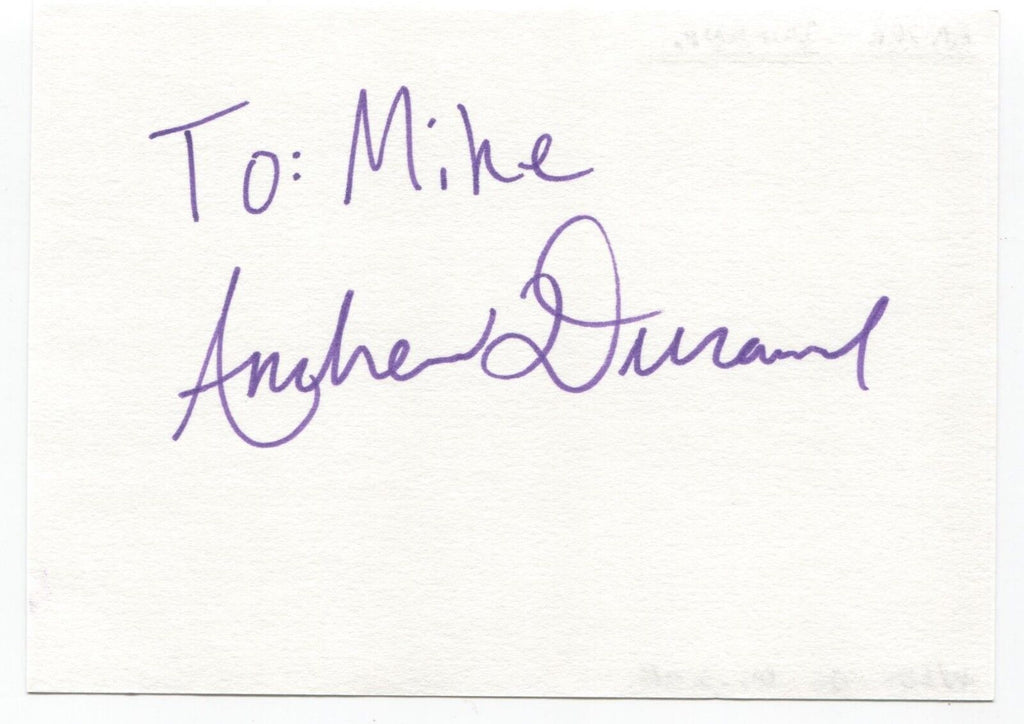 To: Mike
Andrew Durand